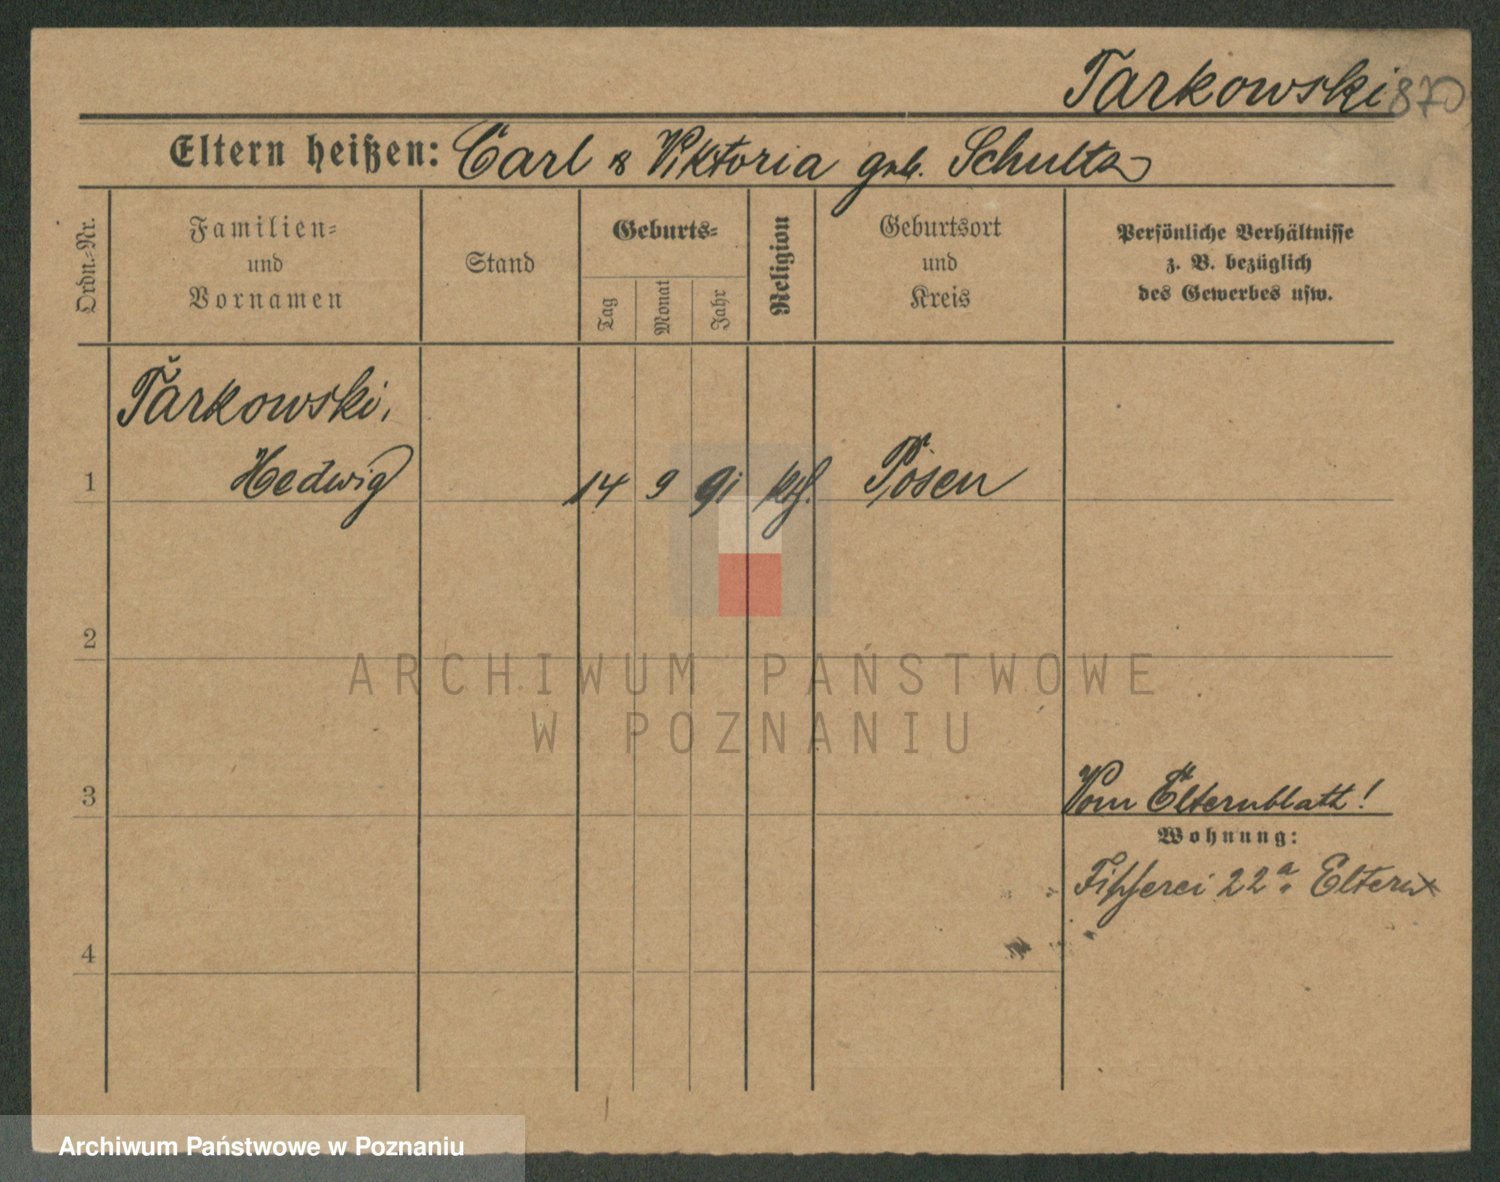 Tarkowski 870
Eltern heißen: Carl & Viktoria geb. Schultz
Ordn.-Nr.
Familien-
und
Vornamen
Stand
Geburts-
Tag
Monat
Jahr
Religion
Geburtsort
und
Kreis
Persönliche Verhältnisse
z. B. bezüglich
des Gewerbes usw.
Tarkowski,
1 Hedwig 14 9 91 Posen
2
ARCHIWUM PAŃSTWOWE
W POZNANIU
3 Vom Elternblatt!
Wohnung:
Fischerei 22a Eltern
4
Archiwum Państwowe w Poznaniu